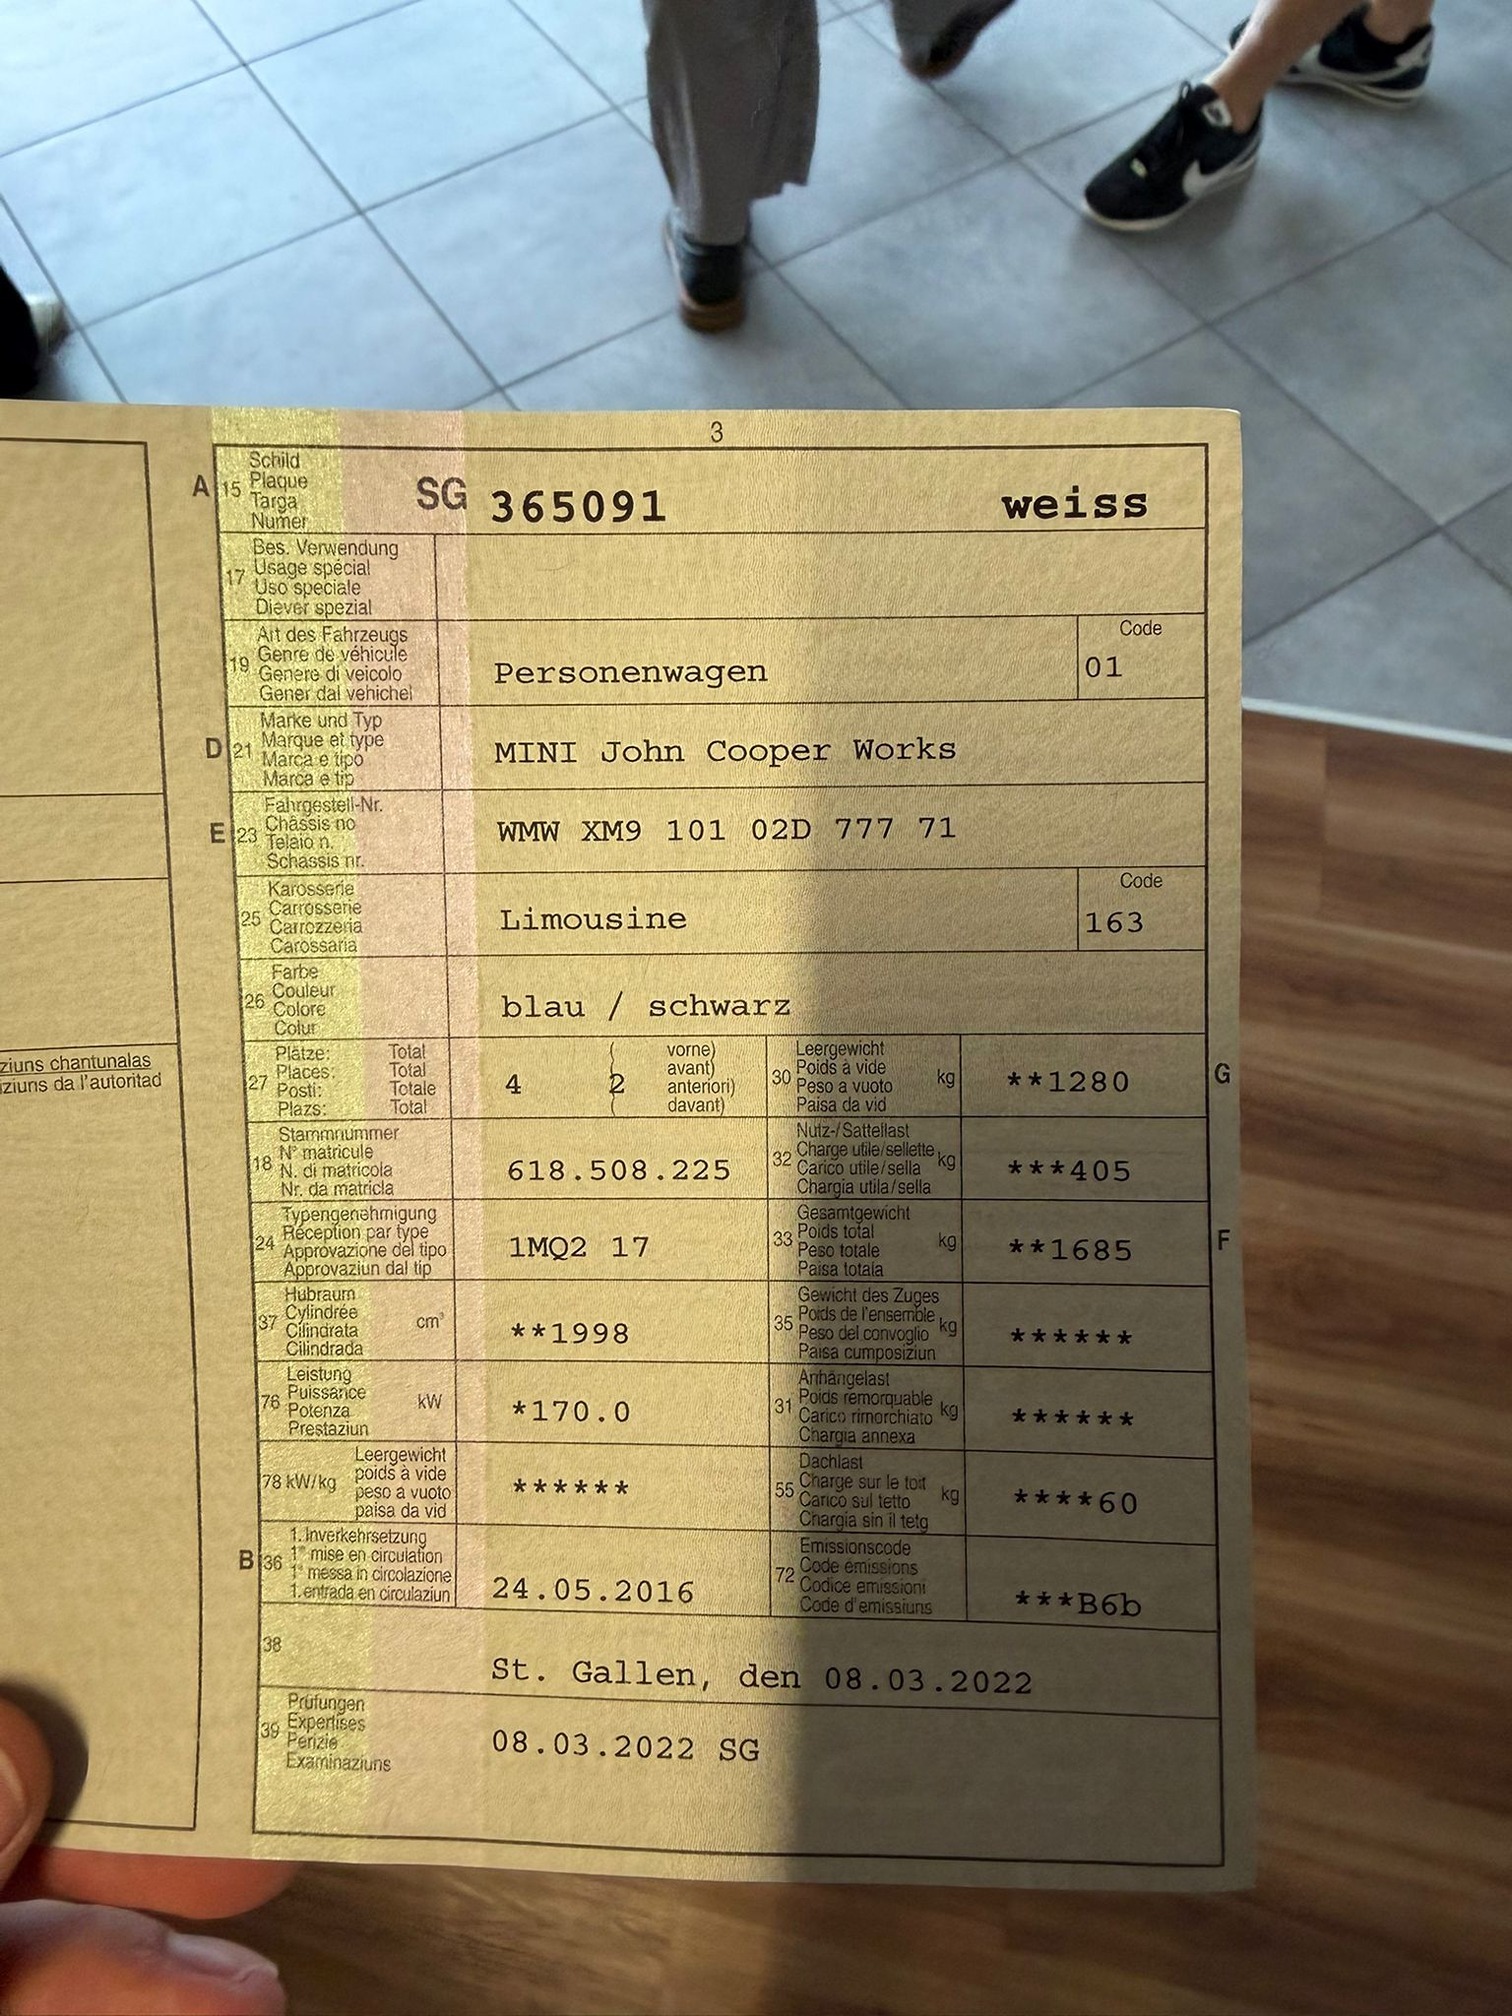 3
A 15 Schild
Plaque
Targa
Numer
SG 365091 weiss
17 Bes. Verwendung
Usage spécial
Uso speciale
Diever spezial
19 Art des Fahrzeugs
Genre de véhicule
Genere di veicolo
Gener dal vehichel
Personenwagen
Code
01
D 21 Marke und Typ
Marque et type
Marca e tipo
Marca e tip
MINI John Cooper Works
E 23 Fahrgestell-Nr.
Châssis no
Telaio n.
Schassis nr.
WMW XM9 101 02D 777 71
25 Karosserie
Carrosserie
Carrozzeria
Carossaria
Limousine
Code
163
26 Farbe
Couleur
Colore
Colur
blau / schwarz
ziuns chantunalas
iziuns da l'autoritad
27 Plätze: Total
Places: Total
Posti: Totale
Plazs: Total
4 ( 2 vorne)
avant)
anteriori)
davant)
30 Leergewicht
Poids à vide
Peso a vuoto
Paisa da vid
kg
**1280
G
18 Stammnummer
N° matricule
N. di matricola
Nr. da matricla
618.508.225
32 Nutz-/Sattellast
Charge utile/sellette
Carico utile/sella
Chargia utila/sella
kg
***405
24 Typengenehmigung
Réception par type
Approvazione del tipo
Approvaziun dal tip
1MQ2 17
33 Gesamtgewicht
Poids total
Peso totale
Paisa totala
kg
**1685
F
37 Hubraum
Cylindrée
Cilindrata
Cilindrada
cm³
**1998
35 Gewicht des Zuges
Poids de l'ensemble
Peso del convoglio
Paisa cumposiziun
kg
******
76 Leistung
Puissance
Potenza
Prestaziun
kW
*170.0
31 Anhängelast
Poids remorquable
Carico rimorchiato
Chargia annexa
kg
******
78 kW/kg Leergewicht
poids à vide
peso a vuoto
paisa da vid
******
55 Dachlast
Charge sur le toit
Carico sul tetto
Chargia sin il tetg
kg
****60
B 36 1. Inverkehrsetzung
1ᵉ mise en circulation
1ᵃ messa in circolazione
1. entrada en circulaziun
24.05.2016
72 Emissionscode
Code émissions
Codice emissioni
Code d'emissiuns
***B6b
38
St. Gallen, den 08.03.2022
39 Prüfungen
Expertises
Perizie
Examinaziuns
08.03.2022 SG